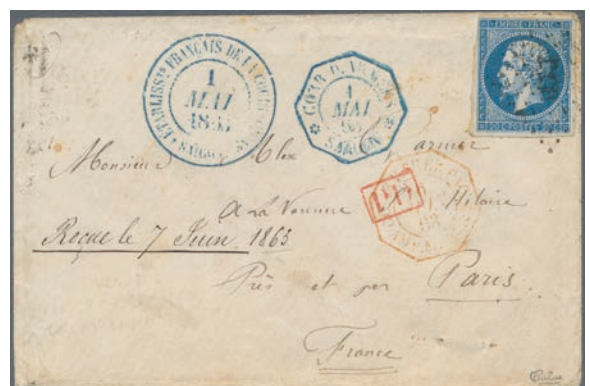 ETABLISSts FRANÇAIS DE LA COCHINCHINE
1
MAI
SAIGON
CORR. D. ARMÉES
1
MAI
63
SAIGON
EMPIRE FRANC
20 C POSTES 20 C
Monsieur Alex
P.D.
A la Varenne St Hilaire
Reçue le 7 Juin 1863
Près et par Paris
France
Calves